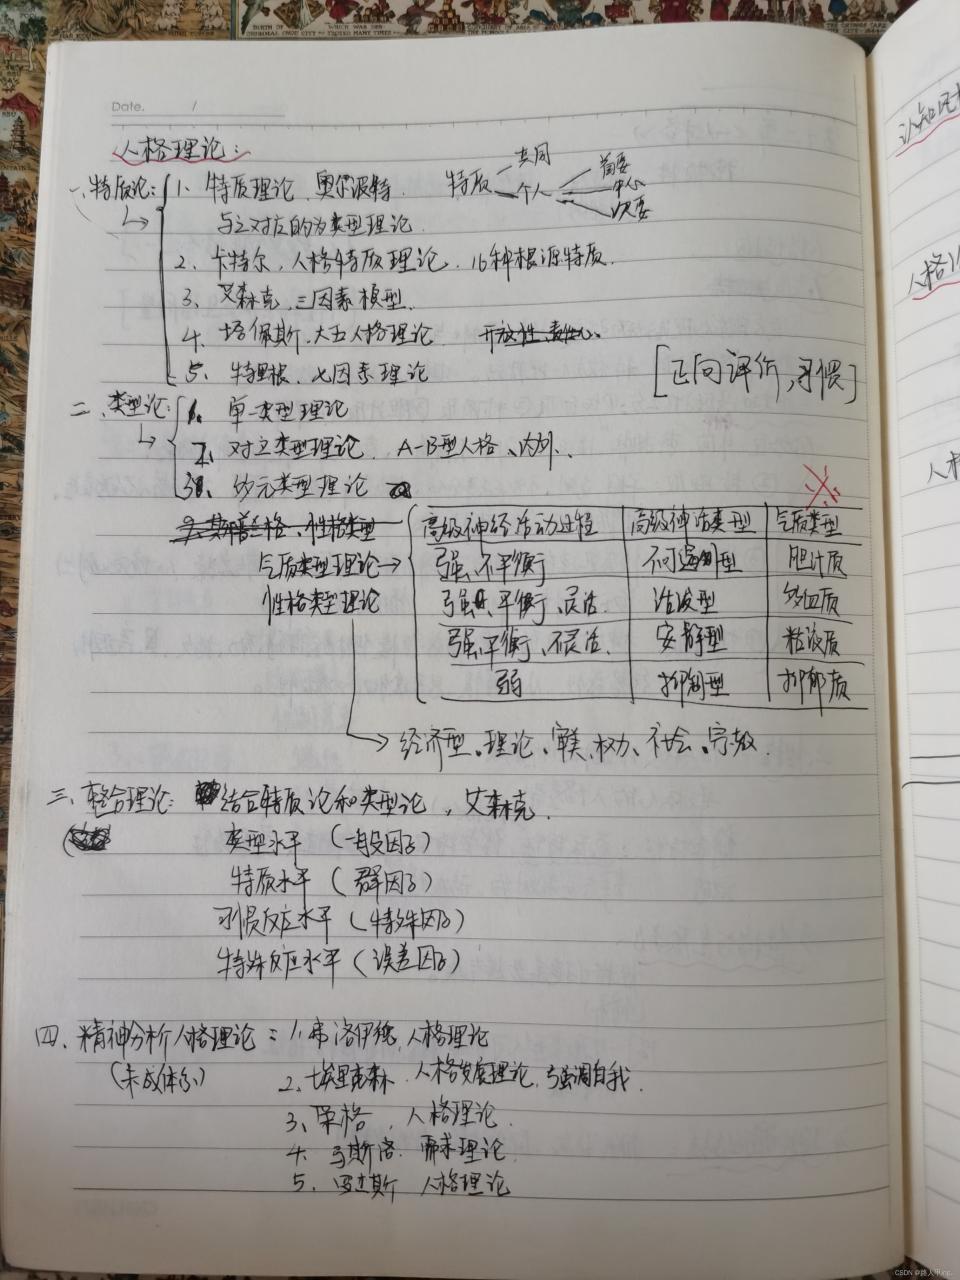 Date. /
人格理论:
一、特质论: 1、特质理论、奥尔波特. 特质 共同 个人 首要 中心 次要
与之对应的为类型理论.
2、卡特尔, 人格特质理论, 16种根源特质.
3、艾森克, 三因素模型.
4、塔佩斯, 大五人格理论 开放性、责任心、
5、特里根、七因素理论
[正向评价,习惯]
二、类型论: 1、单一类型理论
2、对立类型理论, A-B型人格、内外、
3、多元类型理论
性格类型
高级神经活动过程 高级神经类型 气质类型
气质类型理论→ 强、不平衡 不可遏制型 胆汁质
性格类型理论 强、平衡、灵活. 活泼型 多血质
强、平衡、不灵活. 安静型 粘液质
弱 抑制型 抑郁质
经济型、理论、审美、权力、社会、宗教.
三、整合理论: 结合特质论和类型论, 艾森克.
类型水平 (一般因子)
特质水平 (群因子)
习惯反应水平 (特殊因子)
特殊反应水平 (误差因子)
四、精神分析人格理论: 1、弗洛伊德, 人格理论
(未成体系) 2、埃里克森、人格发展理论, 强调自我.
3、荣格, 人格理论.
4、马斯洛. 需求理论.
5、 人格理论
认知
人格
人格
CSDN @路人甲inc.